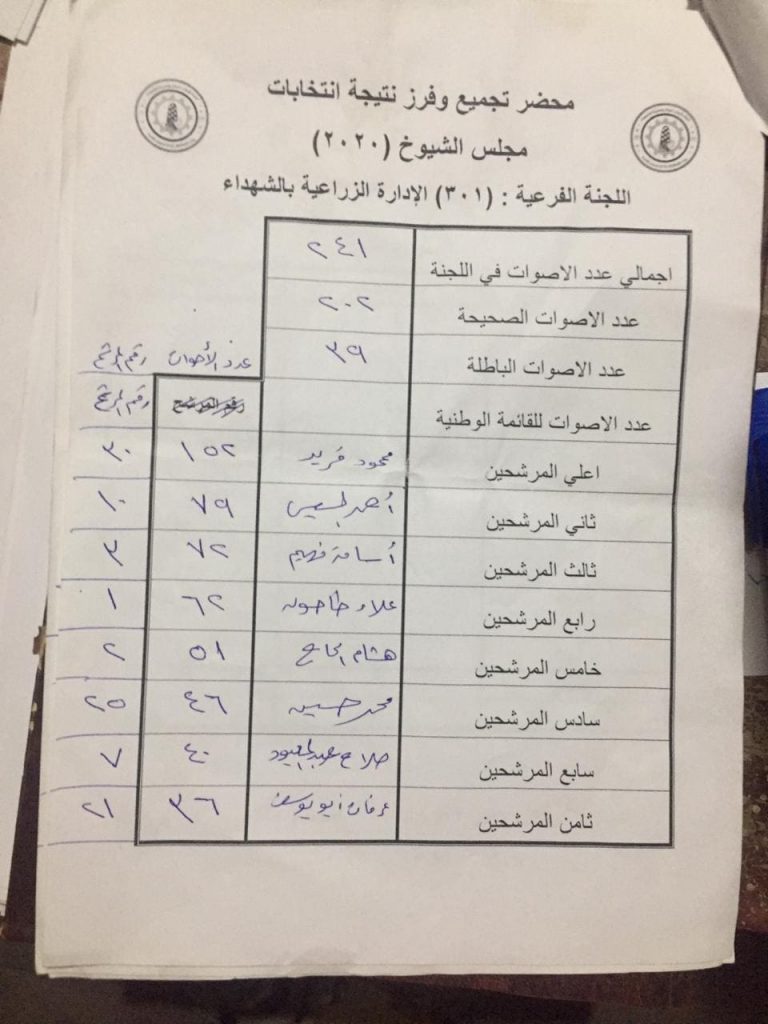 محضر تجميع وفرز نتيجة انتخابات
مجلس الشيوخ (٢٠٢٠)
اللجنة الفرعية : (٣٠١) الإدارة الزراعية بالشهداء
اجمالي عدد الاصوات في اللجنة ٢٤١
عدد الاصوات الصحيحة ٢٠٢
عدد الاصوات الباطلة ٣٩ عدد الأصوات رقم المرشح
عدد الاصوات للقائمة الوطنية رقم المرشح
اعلي المرشحين محمود فريد ١٥٢ ٣٠
ثاني المرشحين أحمد ٧٩ ١٠
ثالث المرشحين أسامة فهيم ٧٢ ٣
رابع المرشحين علاء طاحون ٦٢ ١
خامس المرشحين هشام الحاج ٥١ ٢
سادس المرشحين محمد حسين ٤٦ ٢٥
سابع المرشحين صلاح عبد المعبود ٤٠ ٧
ثامن المرشحين عرفات ابو يوسف ٣٦ ٢١